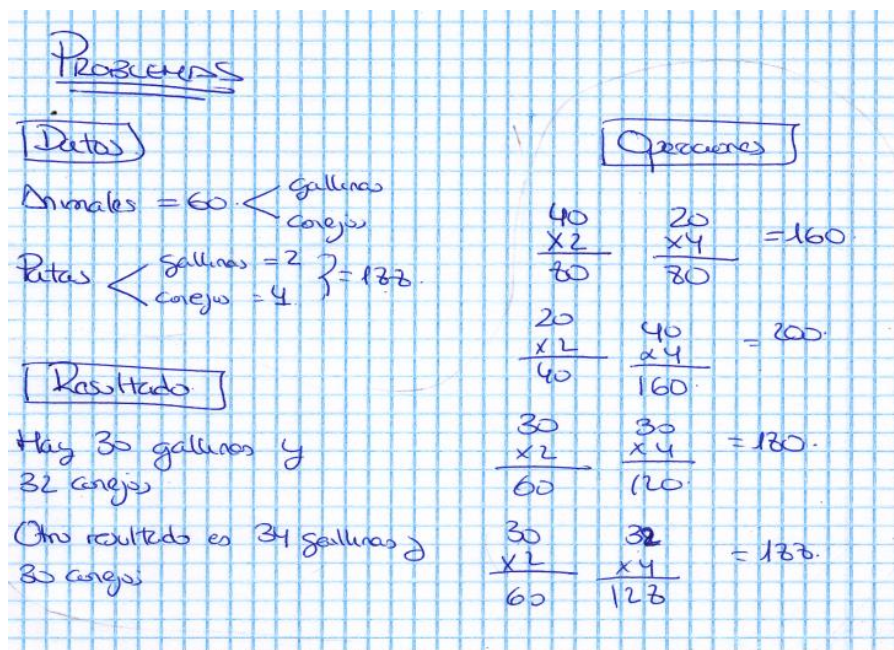 PROBLEMAS
Datos
Animales = 60. < gallinas
conejos
Patas < gallinas = 2
conejos = 4 } = 188.
Resultado.
Hay 30 gallinas y
32 conejos
Otro resultado es 34 gallinas y
30 conejos
Operaciones
40 20
x2 x4 = 160.
80 80
20 40
x2 x4 = 200.
40 160.
30 30
x2 x4 = 180.
60 120.
30 32
x2 x4 = 188.
60 128